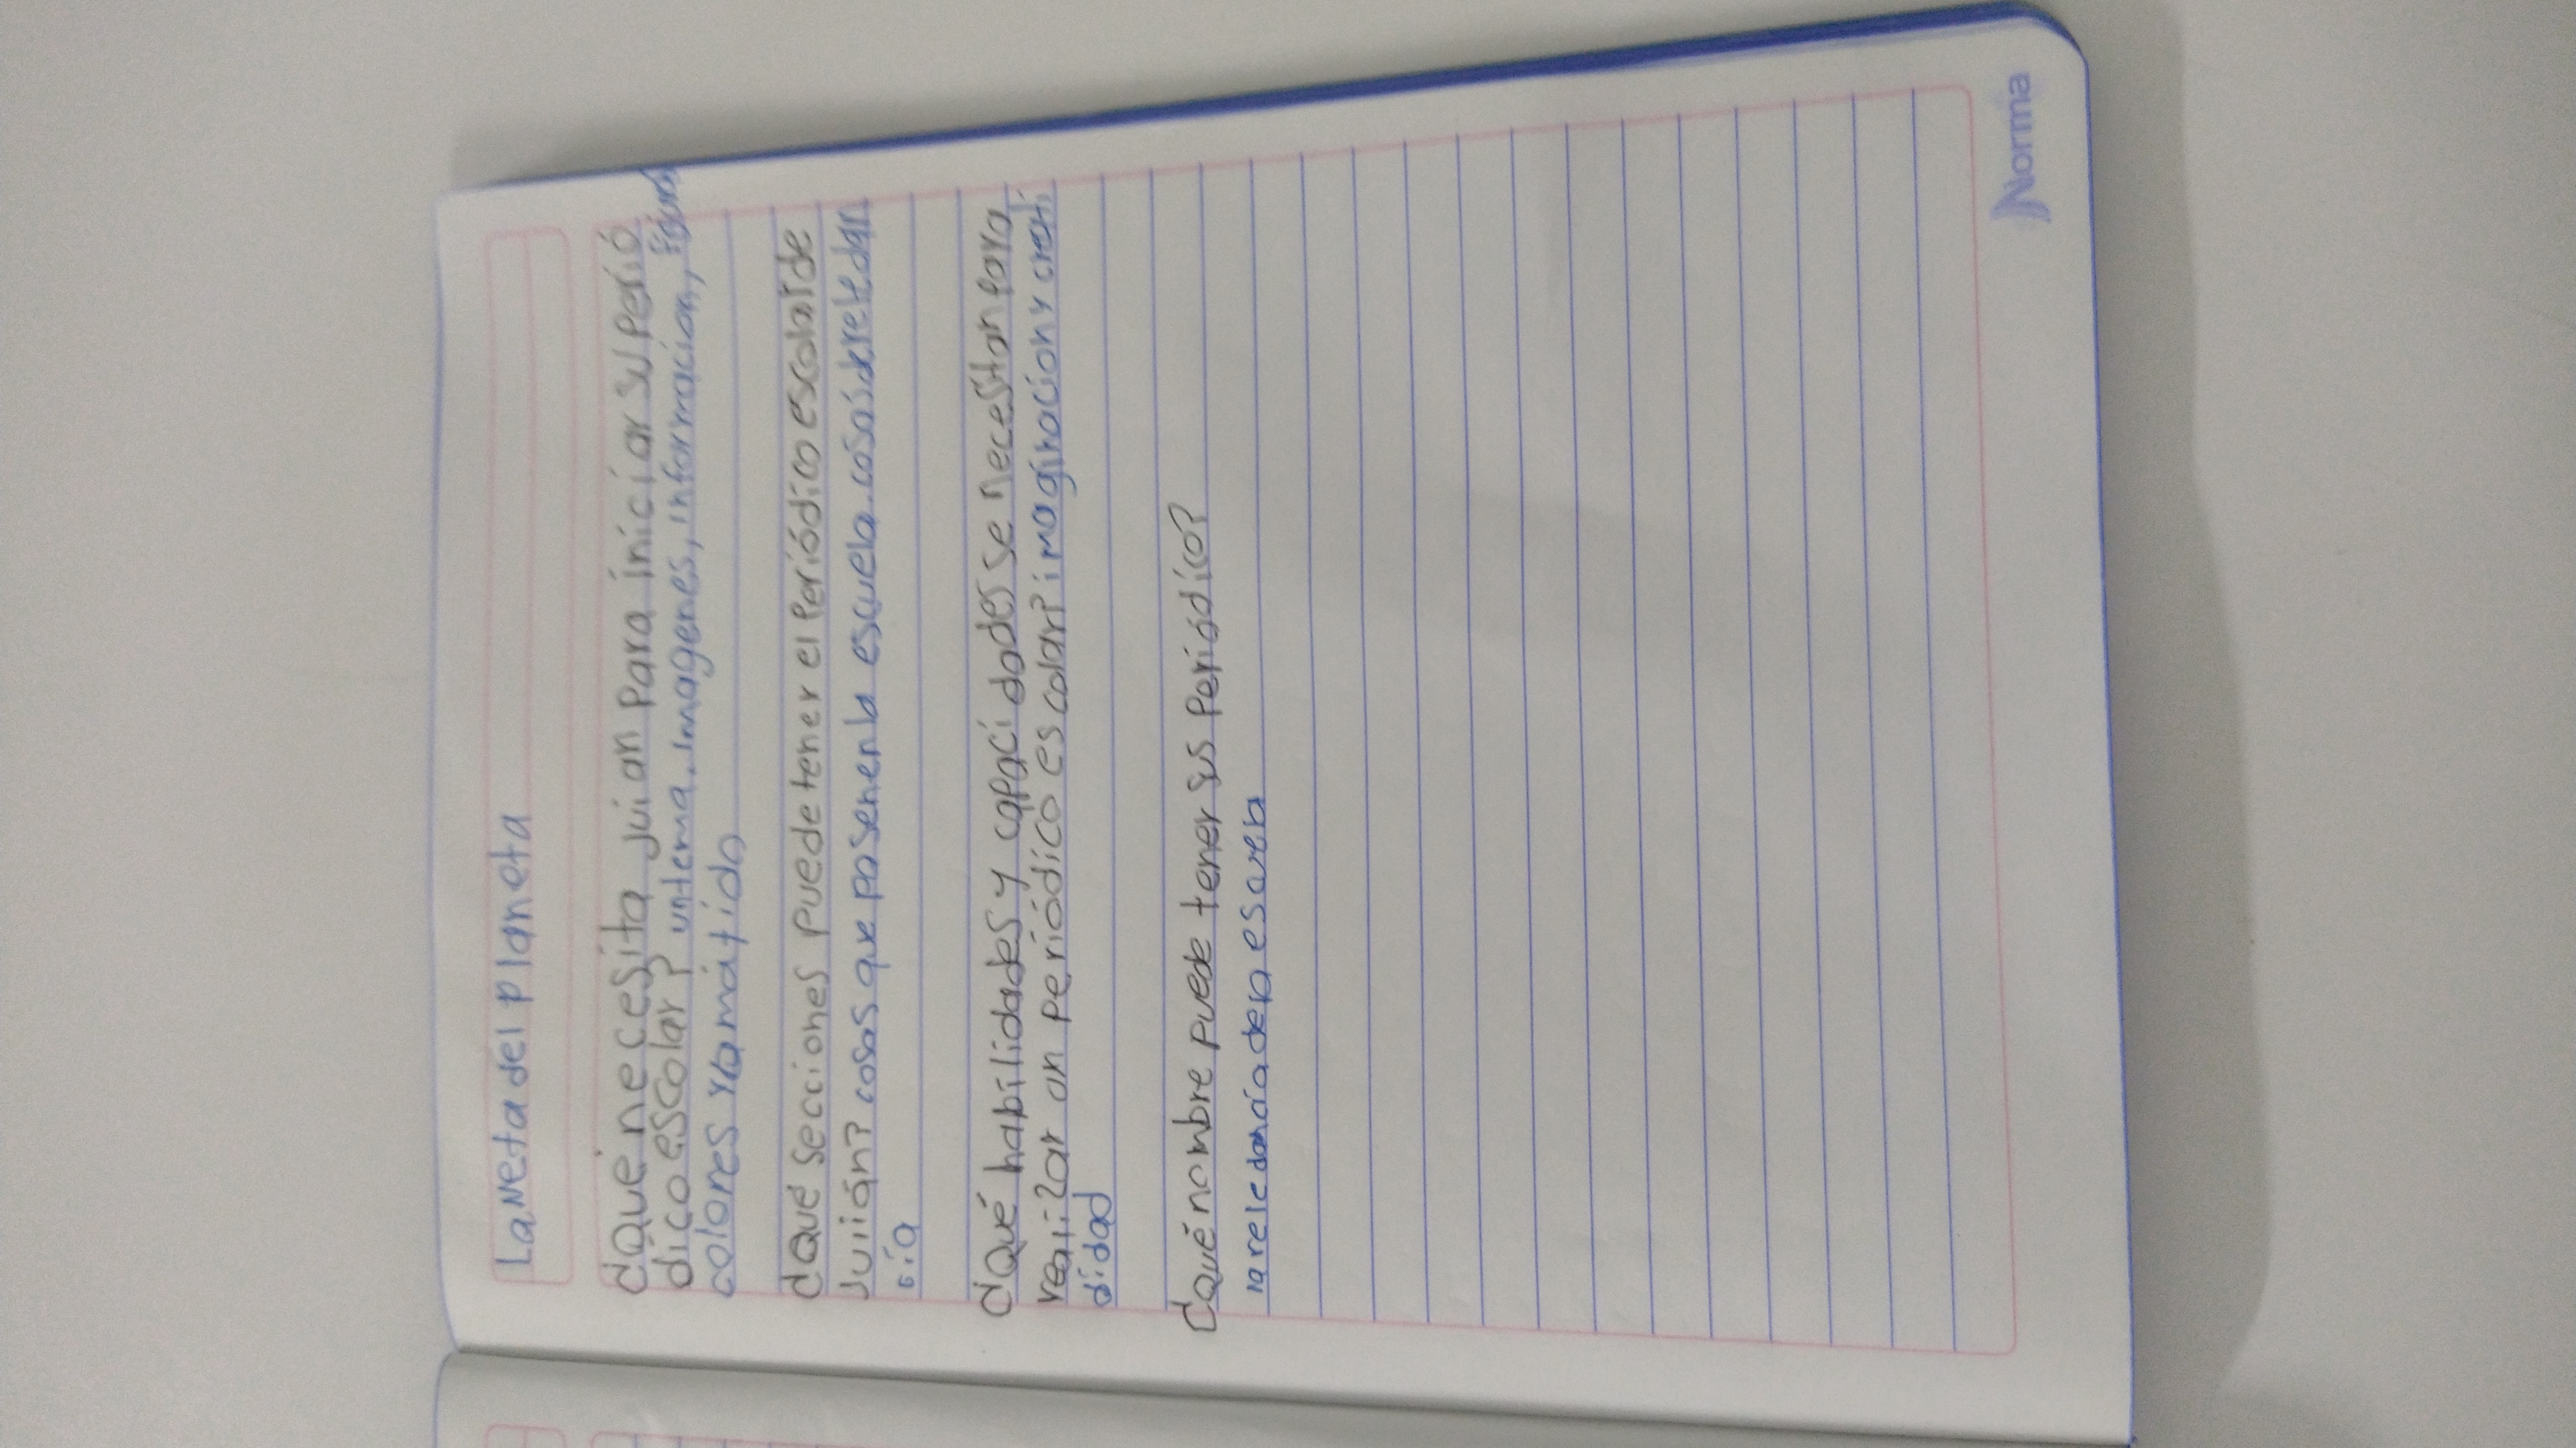 La Neta del planeta
¿Qué necesita juian para iniciar su perió
dico escolar? un tema. imagenes, informacion,
colones y
¿Qué secciones puede tener el periódico escolar de
Juiián? cosas que pasen en la escuela. cosas de
cia
¿Qué habilidades y capacidades se necesitan para
realizar un periódico escolar? imaginacion y creati
didad
¿Qué nombre puede tener sus periódico?
la de la
Norma